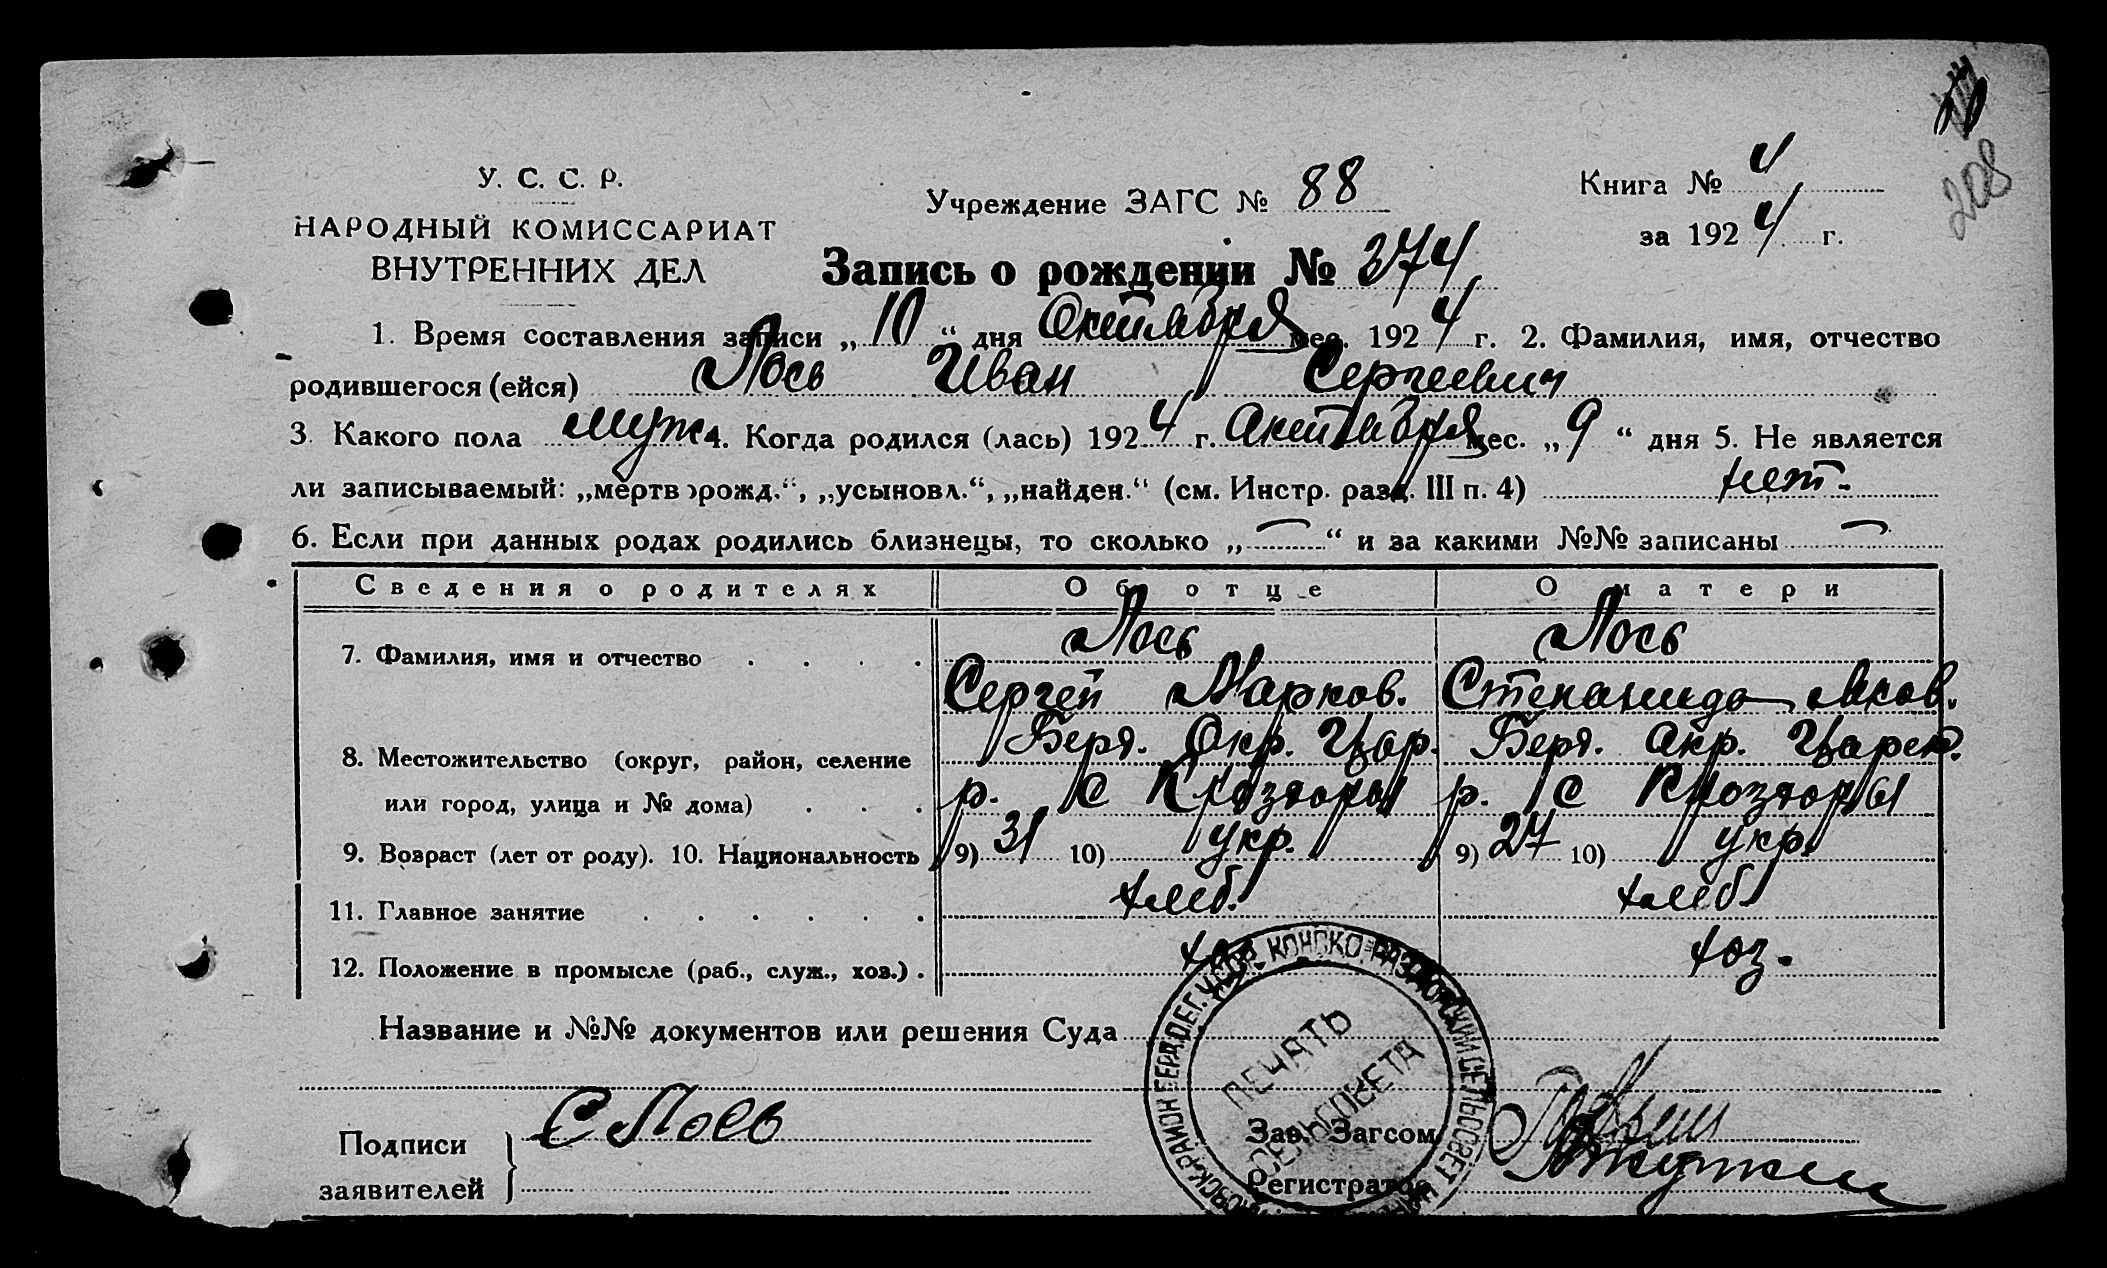 208
У. С. С. Р.
НАРОДНЫЙ КОМИССАРИАТ
ВНУТРЕННИХ ДЕЛ
Учреждение ЗАГС № 88
Книга № 4
за 1924 г.
Запись о рождении № 374
1. Время составления записи „10“ дня Октября мес. 1924 г. 2. Фамилия, имя, отчество
родившегося (ейся) Лось Иван Сергеевич
3. Какого пола муж 4. Когда родился (лась) 1924 г. Октября мес. „9“ дня 5. Не является
ли записываемый: „мертворожд.“, „усыновл.“, „найден.“ (см. Инстр. разд. III п. 4) нет.
6. Если при данных родах родились близнецы, то сколько „—“ и за какими №№ записаны —
Сведения о родителях Об отце О матери
7. Фамилия, имя и отчество Лось Лось
Сергей Марков. Степанида Яков.
8. Местожительство (округ, район, селение Берд. Окр. Цар. Берд. Окр. Царек.
или город, улица и № дома) р. С К Роздоры р. С К Роздоры
9. Возраст (лет от роду). 10. Национальность 9) 31 10) укр. 9) 27 10) укр.
11. Главное занятие хлеб. хлеб
12. Положение в промысле (раб., служ., хоз.) хоз. хоз.
Название и №№ документов или решения Суда
КОНСКО-РАЗДОРСКИЙ СЕЛЬСОВЕТ
ПЕЧАТЬ
СЕЛЬСОВЕТА
Подписи
заявителей
С Лось
Зав. Загсом
Регистратор